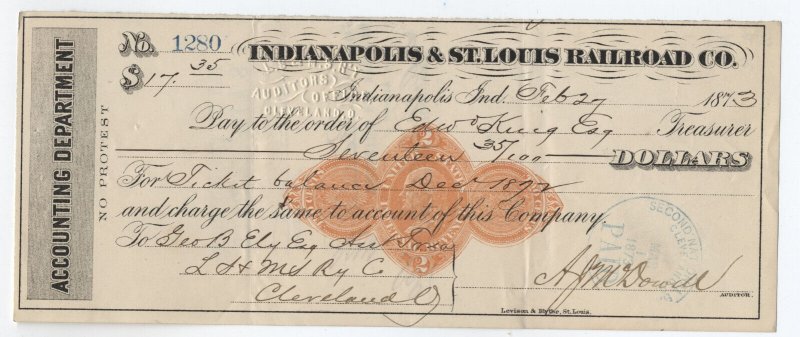 ACCOUNTING DEPARTMENT
NO PROTEST
No. 1280
INDIANAPOLIS & ST. LOUIS RAILROAD CO.
$17.35
AUDITORS OFFICE
CLEVELAND, O.
Indianapolis Ind. Feb 27 1873
Pay to the order of Edwd King Esq Treasurer
Seventeen 35/100 DOLLARS
For Ticket balance Decr 1872
and charge the same to account of this Company.
To Geo B Ely Esq Asst Treas
L S & M S Ry Co
Cleveland O
A J McDowell
AUDITOR.
SECOND NA
CLEV
PAI
Levison & Blythe, St. Louis.